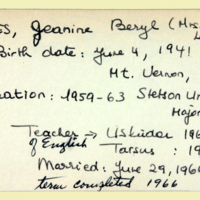 ss, Jeanine Beryl (Mrs.
Birth date: June 4, 1941
Mt. Vernon,
ation: 1959-63 Stetson Un
Major
Teacher → Uskudar 196
of English Tarsus : 19
Married: June 29, 196
term completed 1966